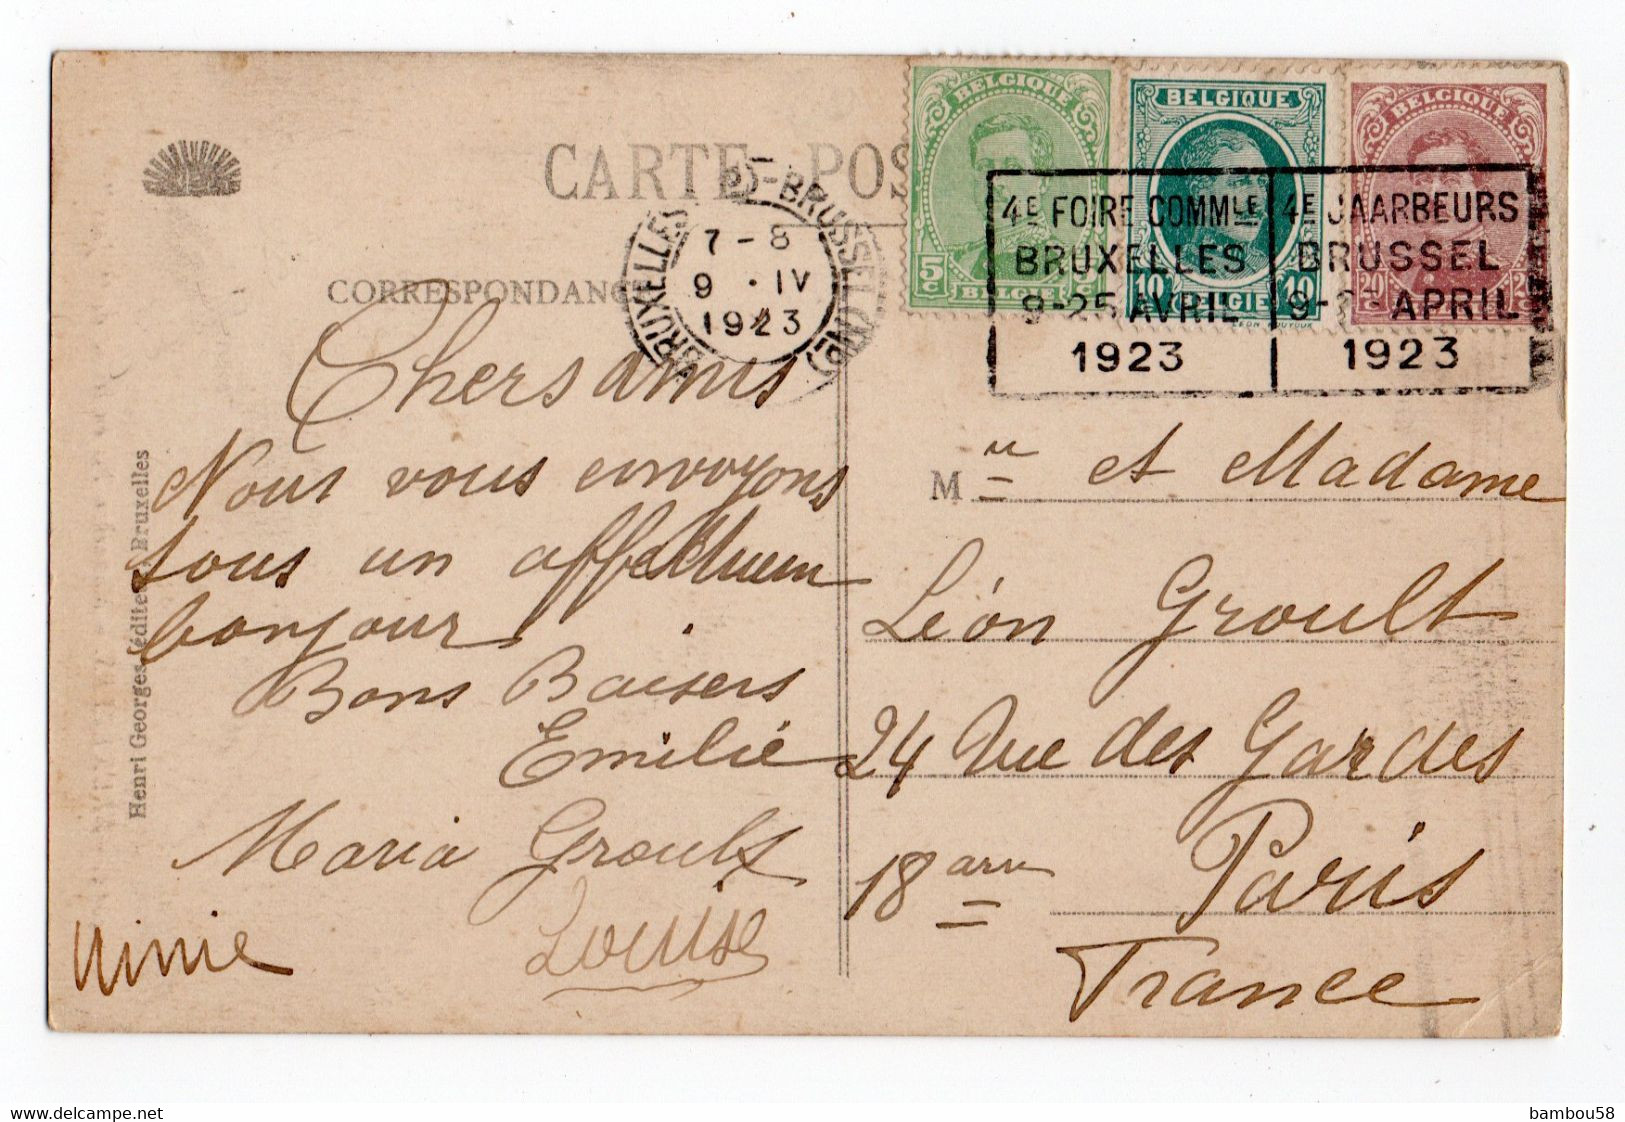 CARTE-POS
CORRESPONDANC
BRUXELLES - BRUSSEL
7-8
9 · IV
1923
BELGIQUE
5c
BELGIE
BELGIQUE
10 BELGIE 10
BELGIQUE
20
4E FOIRE COMMLE
BRUXELLES
9-25 AVRIL
1923
4E JAARBEURS
BRUSSEL
APRIL
1923
Chers amis
Nous vous envoyons
tous un affectueux
bonjour
Bons Baisers
Emilie
Maria Groult
Ninie
Louise
M et Madame
Léon Groult
24 Rue des Gardes
18 arr Paris
France
Henri Georges, éditeur, Bruxelles
bambou58